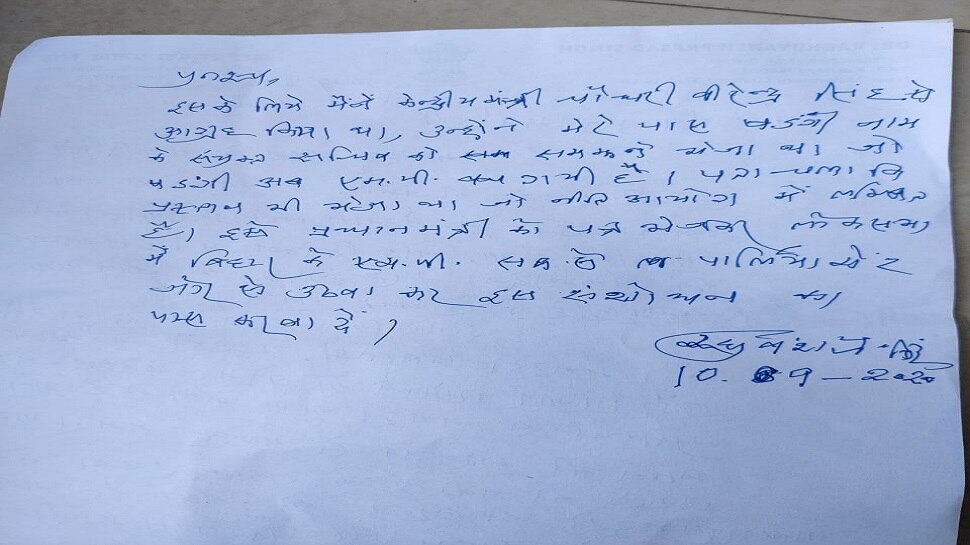 पुनश्च,
इसके लिये मैंने केन्द्रीय मंत्री चौधरी वीरेन्द्र सिंह से
आग्रह किया था, उन्होंने मेरे पास षडंगी नाम
के संयुक्त सचिव को समझने भेजा था जो
षडंगी अब एम.पी. बन गयी हैं। पता चला कि
प्रस्ताव भी भेजा था जो नीति आयोग में लम्बित
है। इसे प्रधानमंत्री को पत्र भेजकर लोकसभा
में बिहार के एम.पी. सब से पार्लियामेंट
से उठवा कर इस संशोधन का
पास करवा दें।
रघुवंश प्र. सिंह
10. 09 - 2020